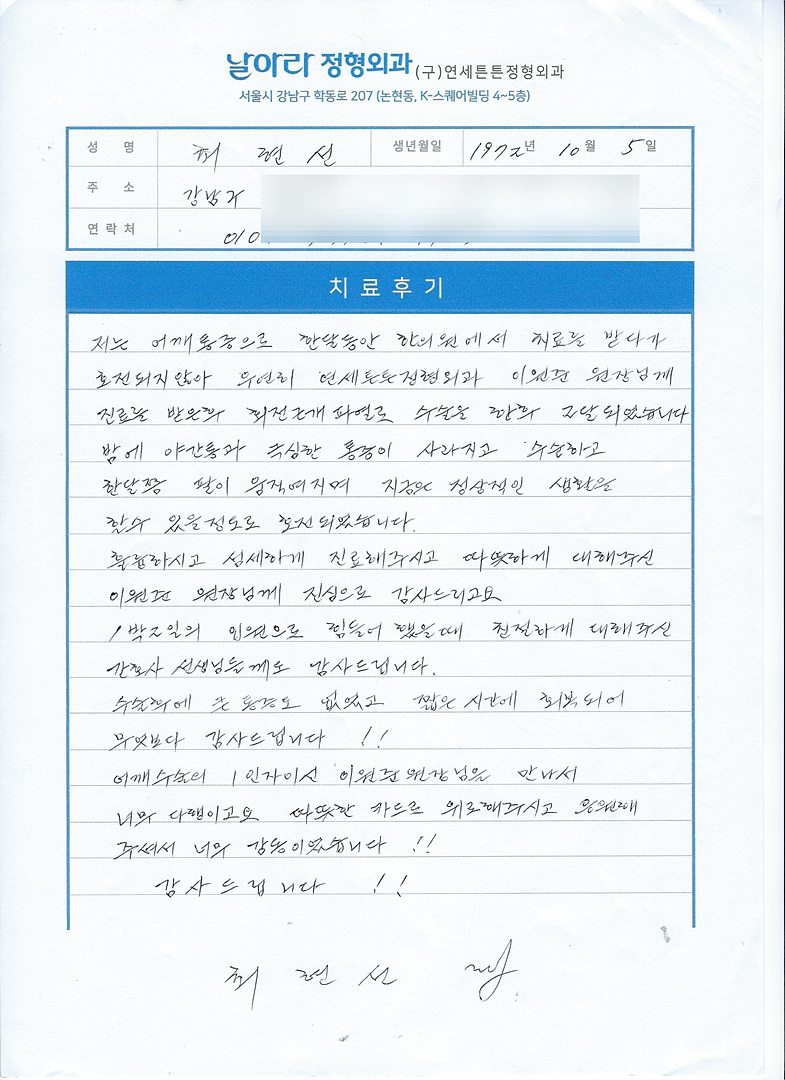 날아라 정형외과 (구)연세튼튼정형외과
서울시 강남구 학동로 207 (논현동, K-스퀘어빌딩 4~5층)
성 명 최 현 선 생년월일 1972년 10월 5일
주 소 강남구
연락처 010
치료후기
저는 어깨통증으로 한달동안 한의원에서 치료를 받다가
호전되지않아 우연히 연세튼튼정형외과 이원준 원장님께
진료를 받은후 회전근개파열로 수술을 한후 2달되었습니다
밤에 야간통과 극심한 통증이 사라지고 수술하고
한달쯤 팔이 움직여지며 지금은 정상적인 생활을
할수 있을정도로 호전되었습니다.
훌륭하시고 섬세하게 진료해주시고 따뜻하게 대해주신
이원준 원장님께 진심으로 감사드리고요
1박2일의 입원으로 힘들어 했을때 친절하게 대해주신
간호사 선생님들께도 감사드립니다.
수술후에 큰 통증도 없었고 짧은 시간에 회복되어
무엇보다 감사드립니다 !!
어깨수술의 1인자이신 이원준원장님을 만나서
너무 다행이고요 따뜻한 카드로 위로해주시고 응원해
주셔서 너무 감동이었습니다 !!
감사드립니다 !!
최 현 선